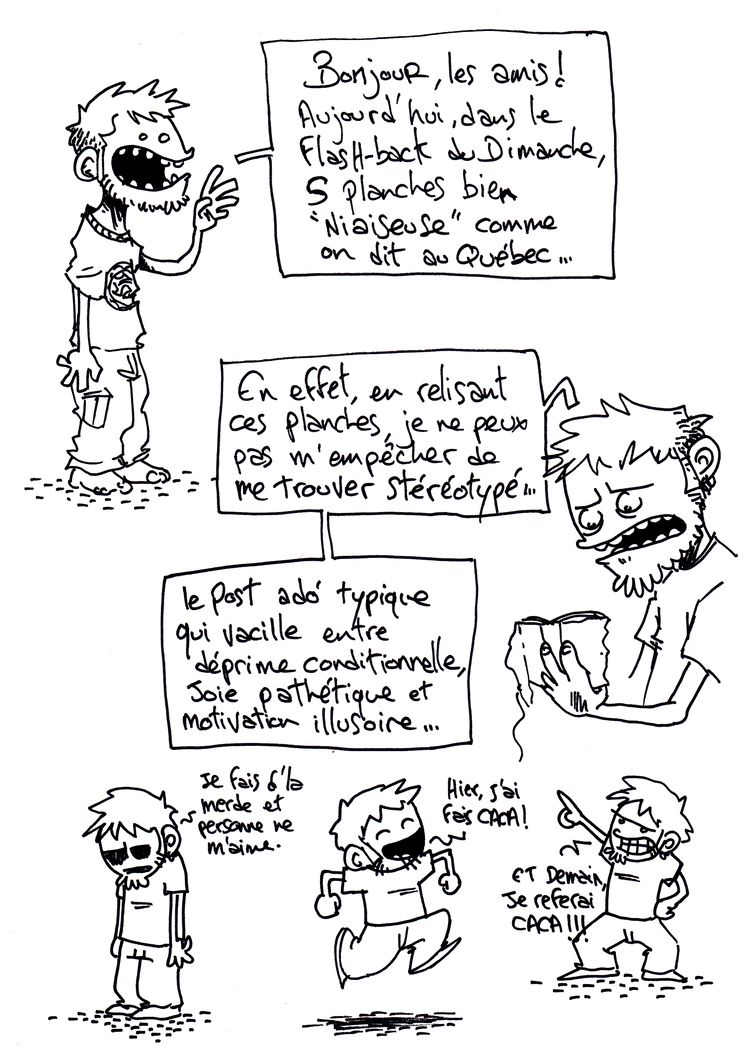 Bonjour, les amis!
Aujourd'hui, dans le
Flash-back du Dimanche,
5 planches bien
"Niaiseuse" comme
on dit au Québec...
En effet, en relisant
ces planches, je ne peux
pas m'empêcher de
me trouver stéréotypé...
le post ado typique
qui vacille entre
déprime conditionnelle,
Joie pathétique et
motivation illusoire...
Je fais d'la
merde et
personne ne
m'aime.
Hier, j'ai
fais CACA!
ET Demain,
Je referai
CACA!!!